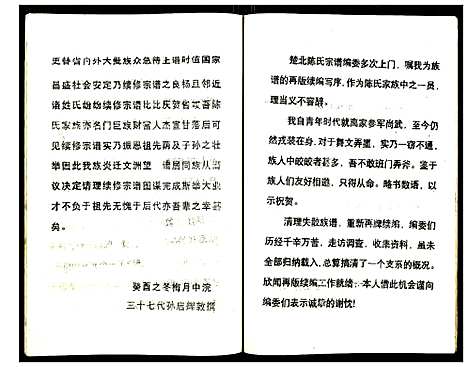 更替省内外大批族众急待上谱时值国家
昌盛社会安定乃续修宗谱之良机且邻近
诸姓氏纷纷续修宗谱比比庆贺省
氏家族亦名门巨族财富人杰宣甘落后可
见续修宗谱实乃振恩祖先荫及子孙之壮
举因此我族炎迁文洲望 谱居同族从
议决定请理续修宗谱图谋完成斯雄大业
才不负于祖先无愧于后代亦吾辈之幸甚
矣。
癸酉之冬梅月中浣
三十七代孙启辉敦撰
楚北陈氏宗谱编委多次上门，嘱我为族
谱的再版续编写序，作为陈氏家族中之一员，
理当义不容辞。
我自青年时代就离家参军尚武，至今仍
然戎装在身，对于舞文弄墨，实乃一窃不通，
族人中皎皎者甚多，吾不敢班门弄斧。鉴于
族人们友好相邀，只得从命。略书数语，以
示祝贺。
清理失散族谱，重新再牌续编，编委们
历经千辛万苦，走访调查，收集资料，虽未
全部归纳载入，总算搞清了一个支系的概况。
欣闻再版续编工作就绪，本人借此机会谨向
编委们表示诚挚的谢忱！